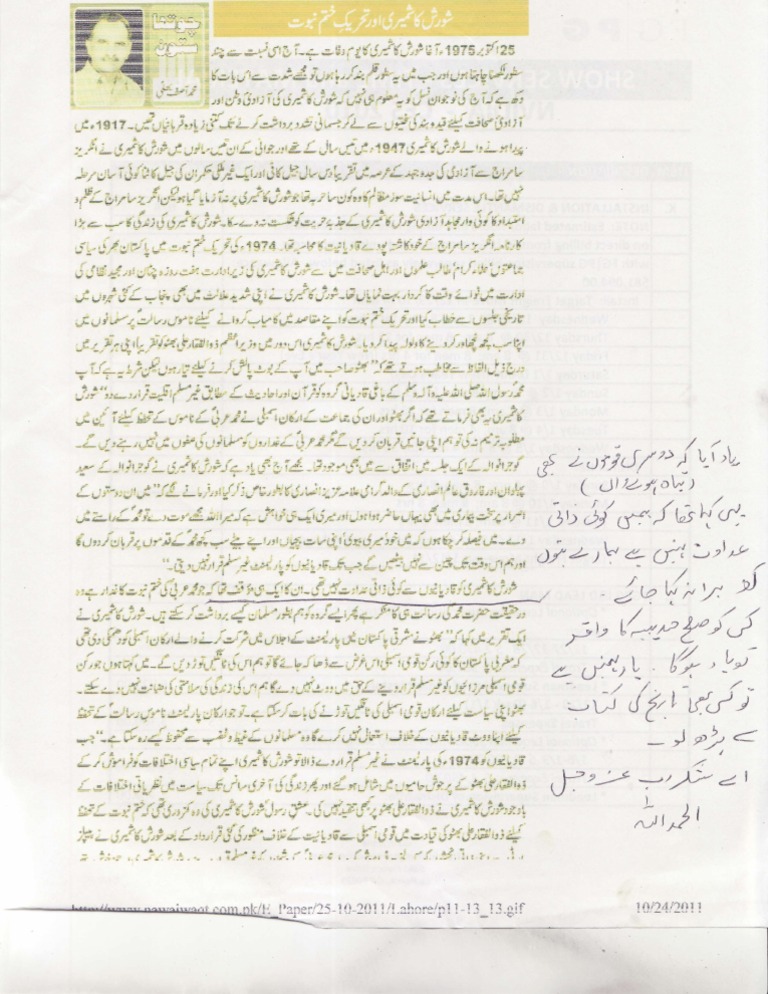 شورش کاشمیری اور تحریک ختم نبوت
چوتھا
ستون
محمد آصف بھلی
25 اکتوبر 1975ء، آغا شورش کاشمیری کا یوم وفات ہے۔ آج اسی نسبت سے چند
سطور لکھنا چاہتا ہوں اور جب میں یہ سطور قلم بند کر رہا ہوں تو مجھے شدت سے اس بات کا
دکھ ہے کہ آج کی نوجوان نسل کو یہ معلوم ہی نہیں کہ شورش کاشمیری کی آزادئ وطن اور
آزادئ صحافت کیلئے قید و بند کی سختیوں سے لے کر جسمانی تشدد برداشت کرنے تک کتنی زیادہ قربانیاں تھیں۔ 1917ء میں
پیدا ہونے والے شورش کاشمیری 1947ء میں تیس سال کے تھے اور جوانی کے ان تیس سالوں میں شورش کاشمیری نے انگریز
سامراج سے آزادی کی جدوجہد کے عرصہ میں تقریباً دس سال جیل کاٹی اور ایک غیر ملکی حکمران کی جیل کاٹنا کوئی آسان مرحلہ
نہیں تھا۔ اس مدت میں انسانیت سوز مظالم کا وہ کون سا حربہ تھا جو شورش کاشمیری پر نہ آزمایا گیا ہو لیکن انگریز سامراج کے ظلم و
استبداد کا کوئی وار مجاہد آزادی شورش کاشمیری کے جذبۂ حریت کو شکست نہ دے سکا۔ شورش کاشمیری کی زندگی کا سب سے بڑا
کارنامہ انگریز سامراج کے خودکاشتہ پودے قادیانیت کا محاسبہ تھا۔ 1974ء کی تحریک ختم نبوت میں پاکستان بھر کی سیاسی
جماعتوں، علماء کرام، طالب علموں اور اہل صحافت میں سے شورش کاشمیری کی زیر ادارت ہفت روزہ چٹان اور مجید نظامی کی
ادارت میں نوائے وقت کا کردار بہت نمایاں تھا۔ شورش کاشمیری نے اپنی شدید علالت میں بھی پنجاب کے کئی شہروں میں
تاریخی جلسوں سے خطاب کیا اور تحریک ختم نبوت کو اپنے مقاصد میں کامیاب کروانے کیلئے ناموس رسالت پر مسلمانوں میں
اپنا سب کچھ نچھاور کر دینے کا ولولہ پیدا کر دیا۔ شورش کاشمیری اس دور میں وزیراعظم ذوالفقار علی بھٹو کو تقریباً اپنی ہر تقریر میں
درج ذیل الفاظ سے مخاطب ہوتے تھے کہ ”بھٹو صاحب میں آپ کے بوٹ پالش کرنے کیلئے تیار ہوں لیکن شرط یہ ہے کہ آپ
محمد رسول اللہ صلی اللہ علیہ وآلہ وسلم کے باغی قادیانی گروہ کو قرآن اور احادیث کے مطابق غیر مسلم اقلیت قرار دے دو“ شورش
کاشمیری یہ بھی فرماتے تھے کہ اگر بھٹو اور ان کی جماعت کے ارکان اسمبلی نے محمد عربیؐ کے ناموس کے تحفظ کیلئے آئین میں
مطلوبہ ترمیم نہ کی تو ہم اپنی جانیں قربان کر دیں گے مگر محمد عربیؐ کے غداروں کو مسلمانوں کی صفوں میں نہیں رہنے دیں گے۔
گوجرانوالہ کے ایک جلسہ میں اتفاق سے میں بھی موجود تھا۔ مجھے آج بھی یاد ہے کہ شورش کاشمیری نے گوجرانوالہ کے سعید
پہلوان اور فاروق عالم انصاری کے والد گرامی علامہ عزیز انصاری کا بطور خاص ذکر کیا اور فرمانے لگے کہ ”میں ان دوستوں کے
اصرار پر سخت بیماری میں بھی یہاں حاضر ہوا ہوں اور میری ایک ہی خواہش ہے کہ میرا اللہ مجھے موت دے تو محمدؐ کے راستے میں
دے۔ میں فیصلہ کر چکا ہوں کہ میں خود میری بیوی اپنی سات بچیاں اور اپنے بیٹے سب کچھ محمدؐ کے قدموں پر قربان کر دوں گا
اور ہم اس وقت تک چین سے نہیں بیٹھیں گے جب تک قادیانیوں کو پارلیمنٹ غیر مسلم قرار نہیں دیتی۔“
شورش کاشمیری کو قادیانیوں سے کوئی ذاتی عداوت نہیں تھی۔ ان کا ایک ہی مؤقف تھا کہ جو محمد عربیؐ کی ختم نبوت کا غدار ہے وہ
درحقیقت حضرت محمدؐ کی رسالت ہی کا منکر ہے پھر ایسے گروہ کو ہم بطور مسلمان کیسے برداشت کر سکتے ہیں۔ شورش کاشمیری نے
ایک تقریر میں کہا کہ ”بھٹو نے مشرقی پاکستان میں پارلیمنٹ کے اجلاس میں شرکت کرنے والے ارکان اسمبلی کو دھمکی دی تھی
کہ مغربی پاکستان کا کوئی رکن قومی اسمبلی اس غرض سے ڈھاکہ جائے گا تو ہم اس کی ٹانگیں توڑ دیں گے۔ میں کہتا ہوں جو رکن
قومی اسمبلی مرزائیوں کو غیر مسلم قرار دینے کے حق میں ووٹ نہیں دے گا ہم اس کی زندگی کی سلامتی کی ضمانت نہیں دے سکتے۔
بھٹو اپنی سیاست کیلئے ارکان قومی اسمبلی کی ٹانگیں توڑنے کی بات کر سکتا ہے۔ تو جو ارکان پارلیمنٹ ناموس رسالت کے تحفظ
کیلئے اپنا ووٹ قادیانیوں کے خلاف استعمال نہیں کرے گا وہ مسلمانوں کے غیظ و غضب سے محفوظ کیسے رہ سکتا ہے۔“ جب
قادیانیوں کو 1974ء کی پارلیمنٹ نے غیر مسلم قرار دے ڈالا تو شورش کاشمیری اپنے تمام سیاسی اختلافات کو فراموش کر کے
ذوالفقار علی بھٹو کے پرجوش حامیوں میں شامل ہو گئے اور پھر زندگی کی آخری سانس تک سیاست میں نظریاتی اختلافات کے
باوجود شورش کاشمیری نے ذوالفقار علی بھٹو پر کبھی تنقید نہیں کی۔ عشق رسولؐ شورش کاشمیری کی وہ کمزوری تھی کہ ختم نبوت کے تحفظ
کیلئے ذوالفقار علی بھٹو کی قیادت میں قومی اسمبلی سے قادیانیت کے خلاف منظور کی گئی قرارداد کے بعد شورش کاشمیری نے پیپلز
یاد آیا کہ دوسری قوموں نے بھی
(تباہ ہونے والی)
یہی کہا تھا کہ ہمیں کوئی ذاتی
عداوت نہیں ہے ہمارے بتوں
کو برا نہ کہا جائے
کسی کو صلح حدیبیہ کا واقعہ
تو یاد ہوگا۔ یاد نہیں ہے
تو کسی بھی تاریخ کی کتاب
سے پڑھ لو۔
اے شکر رب عزوجل
الحمد اللہ
http://www.nawaiwaqt.com.pk/E_Paper/25-10-2011/Lahore/p11-13_13.gif
10/24/2011